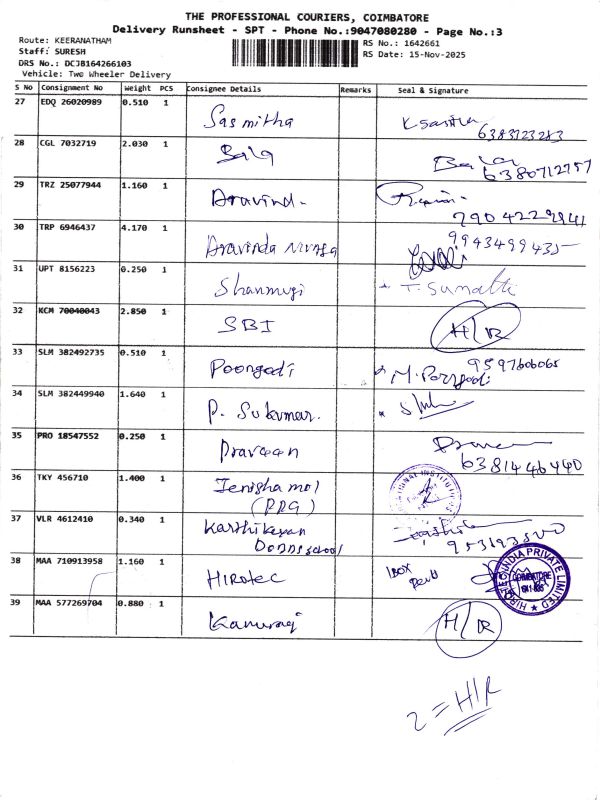 THE PROFESSIONAL COURIERS, COIMBATORE
Delivery Runsheet - SPT - Phone No.:9047080280 - Page No.:3
Route: KEERANATHAM
RS No.: 1642661
Staff: SURESH
RS Date: 15-Nov-2025
DRS No.: DCJB164266103
Vehicle: Two Wheeler Delivery
S No Consignment No Weight PCS Consignee Details Remarks Seal & Signature
27 EDQ 26020989 0.510 1 Sasmitha
6383723283
28 CGL 7032719 2.030 1 Bala Bala
6380712757
29 TRZ 25077944 1.160 1 Aravind.
7904229941
30 TRP 6946437 4.170 1 Aravinda
31 UPT 8156223 0.250 1 Shanmugi T. Sumathi
32 KCM 70040043 2.850 1 SBI H/R
33 SLM 382492735 0.510 1 Poongodi M. Poongodi
9597606065
34 SLM 382449940 1.640 1 P. Sukumar.
35 PRO 18547552 0.250 1 Praveen
6381446440
36 TKY 456710 1.400 1 Jenisha mol
(PPG)
37 VLR 4612410 0.340 1 Karthikeyan
school
38 MAA 710913958 1.160 1 Hirotec 1 BOX
INDIA PRIVATE LIMITED
COIMBATORE
39 MAA 577269704 0.880 1 H/R
2 = H/R